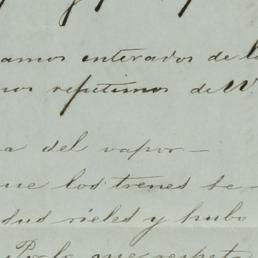 amos enterados de l
nos repetimos de V
a del vapor—
ue los trenes se
dus rieles y hubo
Por lo que respeta